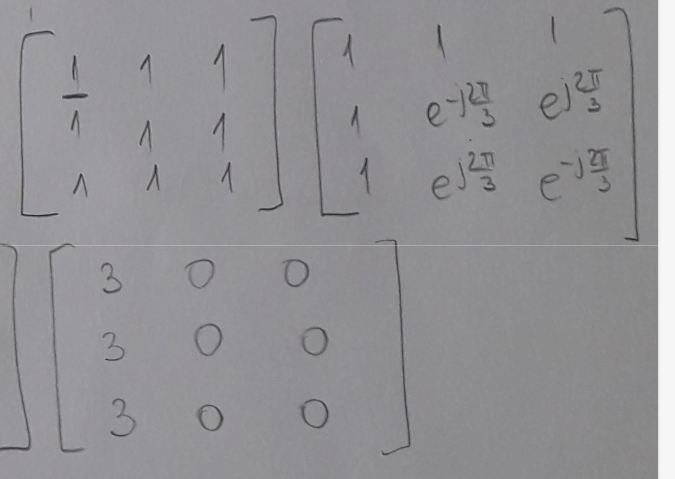 [ 1 1 1 ] [ 1 1 1 ]
[ 1 1 1 ] [ 1 e^{-j\frac{2π}{3}} e^{j\frac{2π}{3}} ]
[ 1 1 1 ] [ 1 e^{j\frac{2π}{3}} e^{-j\frac{2π}{3}} ]
] [ 3 0 0 ]
] [ 3 0 0 ]
] [ 3 0 0 ]